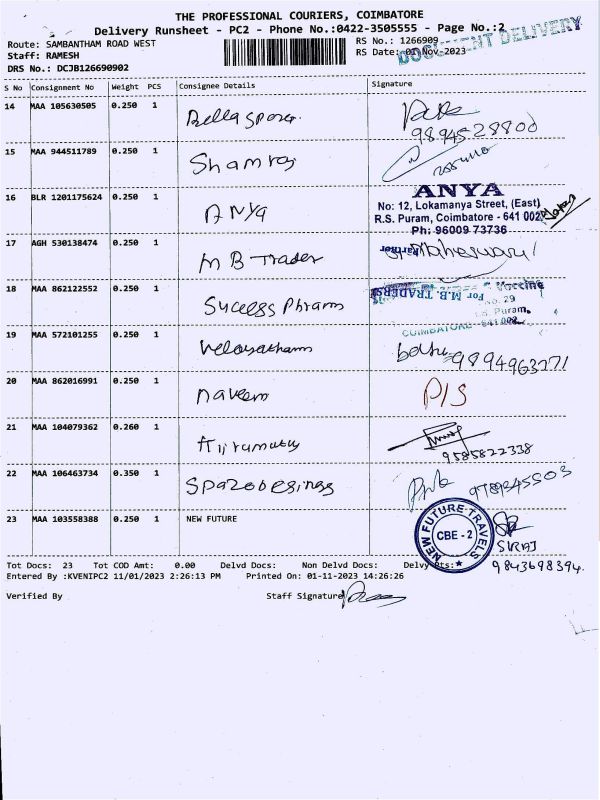 THE PROFESSIONAL COURIERS, COIMBATORE
Delivery Runsheet - PC2 - Phone No.:0422-3505555 - Page No.:2
DOCUMENT DELIVERY
Route: SAMBANTHAM ROAD WEST RS No.: 1266909
Staff: RAMESH RS Date: 01-Nov-2023
DRS No.: DCJB126690902
S No Consignment No Weight PCS Consignee Details Signature
14 MAA 105630505 0.250 1 Bella
9894528800
15 MAA 944511789 0.250 1 Shamraj
16 BLR 1201175624 0.250 1 ANYA
ANYA
No: 12, Lokamanya Street, (East)
R.S. Puram, Coimbatore - 641 002
Ph: 96009 73736
17 AGH 530138474 0.250 1 M B Trader
Partner
Maheswari
18 MAA 862122552 0.250 1 Sucess
For M.B. TRADERS
Vaccine
No. 29
Puram,
COIMBATORE - 641 002
19 MAA 572101255 0.250 1 Velayatham
9894963271
20 MAA 862016991 0.250 1 naveen P/S
21 MAA 104079362 0.260 1
9585822338
22 MAA 106463734 0.350 1
23 MAA 103558388 0.250 1 NEW FUTURE
NEW FUTURE TRAVELS
CBE - 2
SIRAJ
9843698394.
Tot Docs: 23 Tot COD Amt: 0.00 Delvd Docs: Non Delvd Docs: Delvy Pts:
Entered By :KVENIPC2 11/01/2023 2:26:13 PM Printed On: 01-11-2023 14:26:26
Verified By Staff Signature